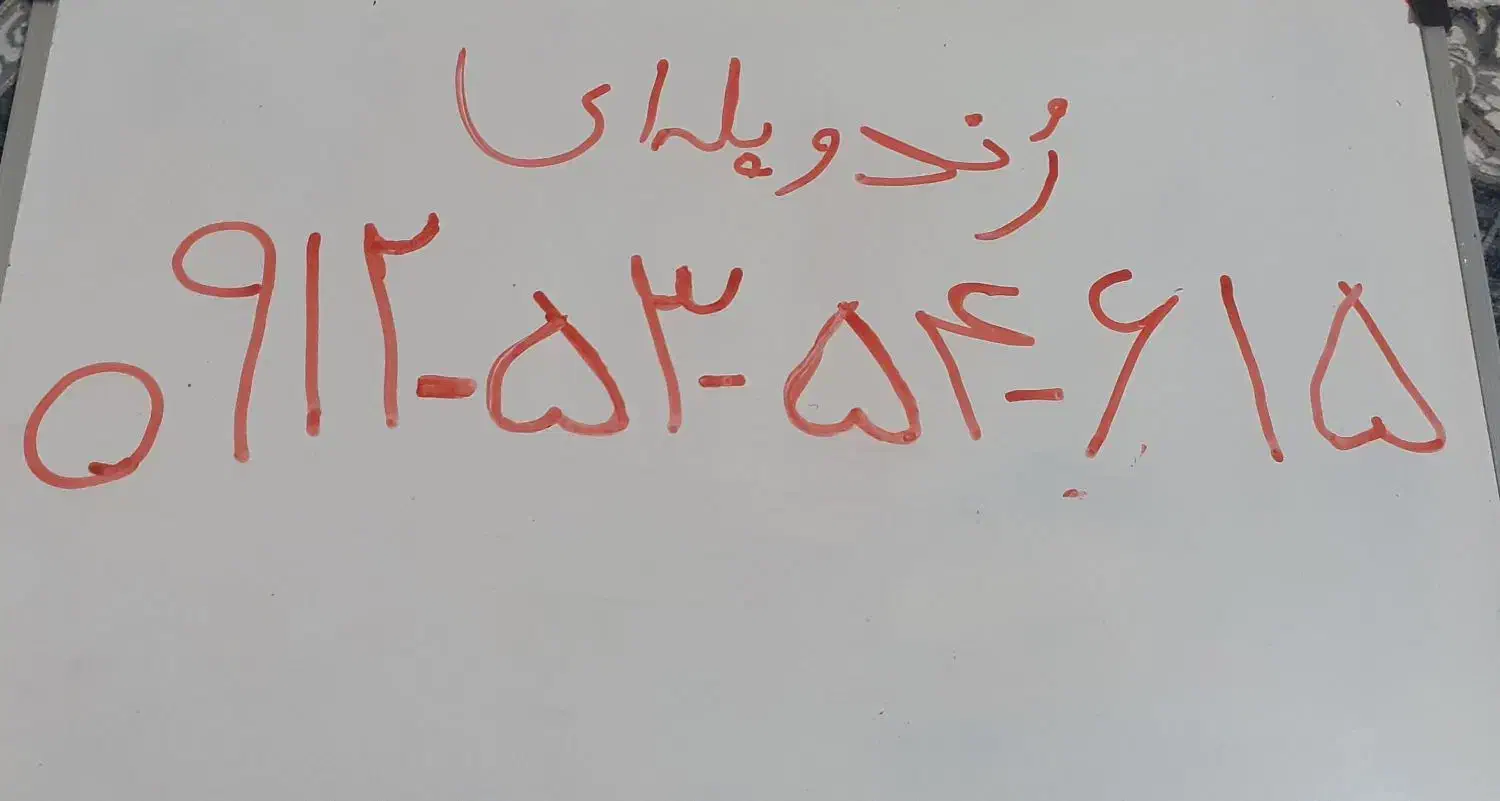 رُند و پله ای
۰۹۱۲-۵۳-۵۴-۶۱۵